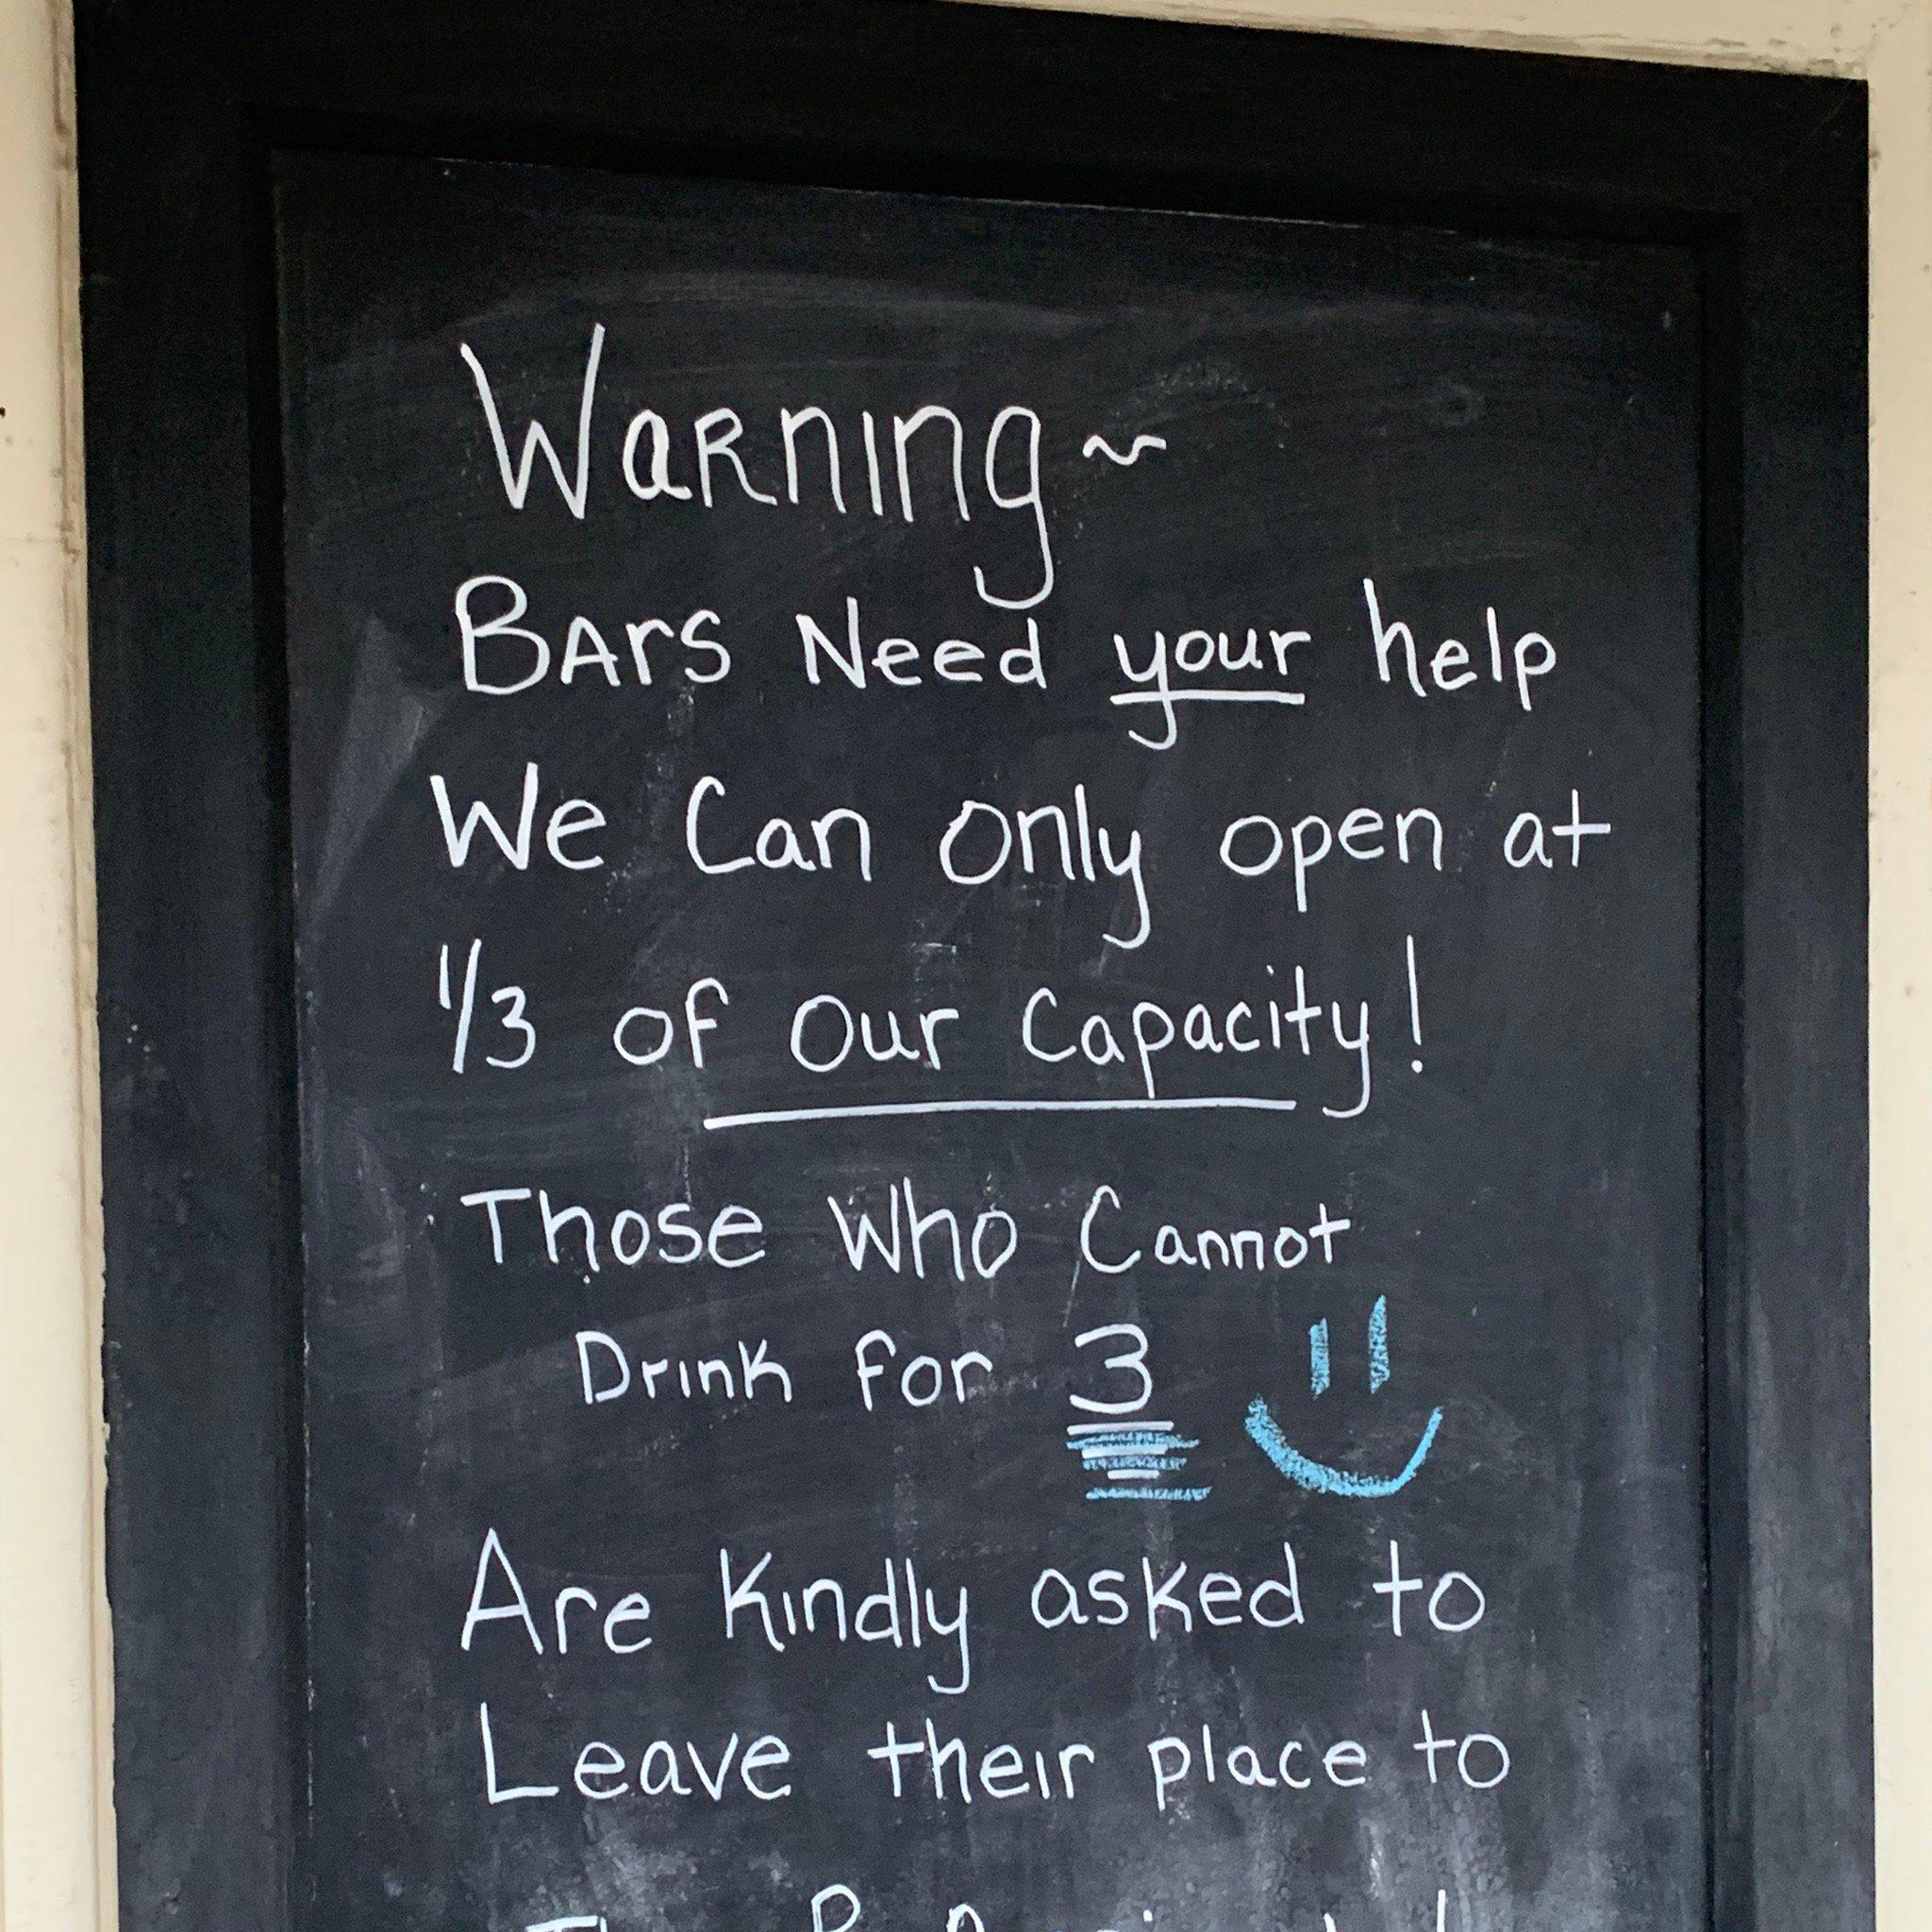 Warning ~
Bars Need your help
We Can only open at
1/3 of our Capacity!
Those Who Cannot
Drink for 3
Are Kindly asked to
Leave their place to